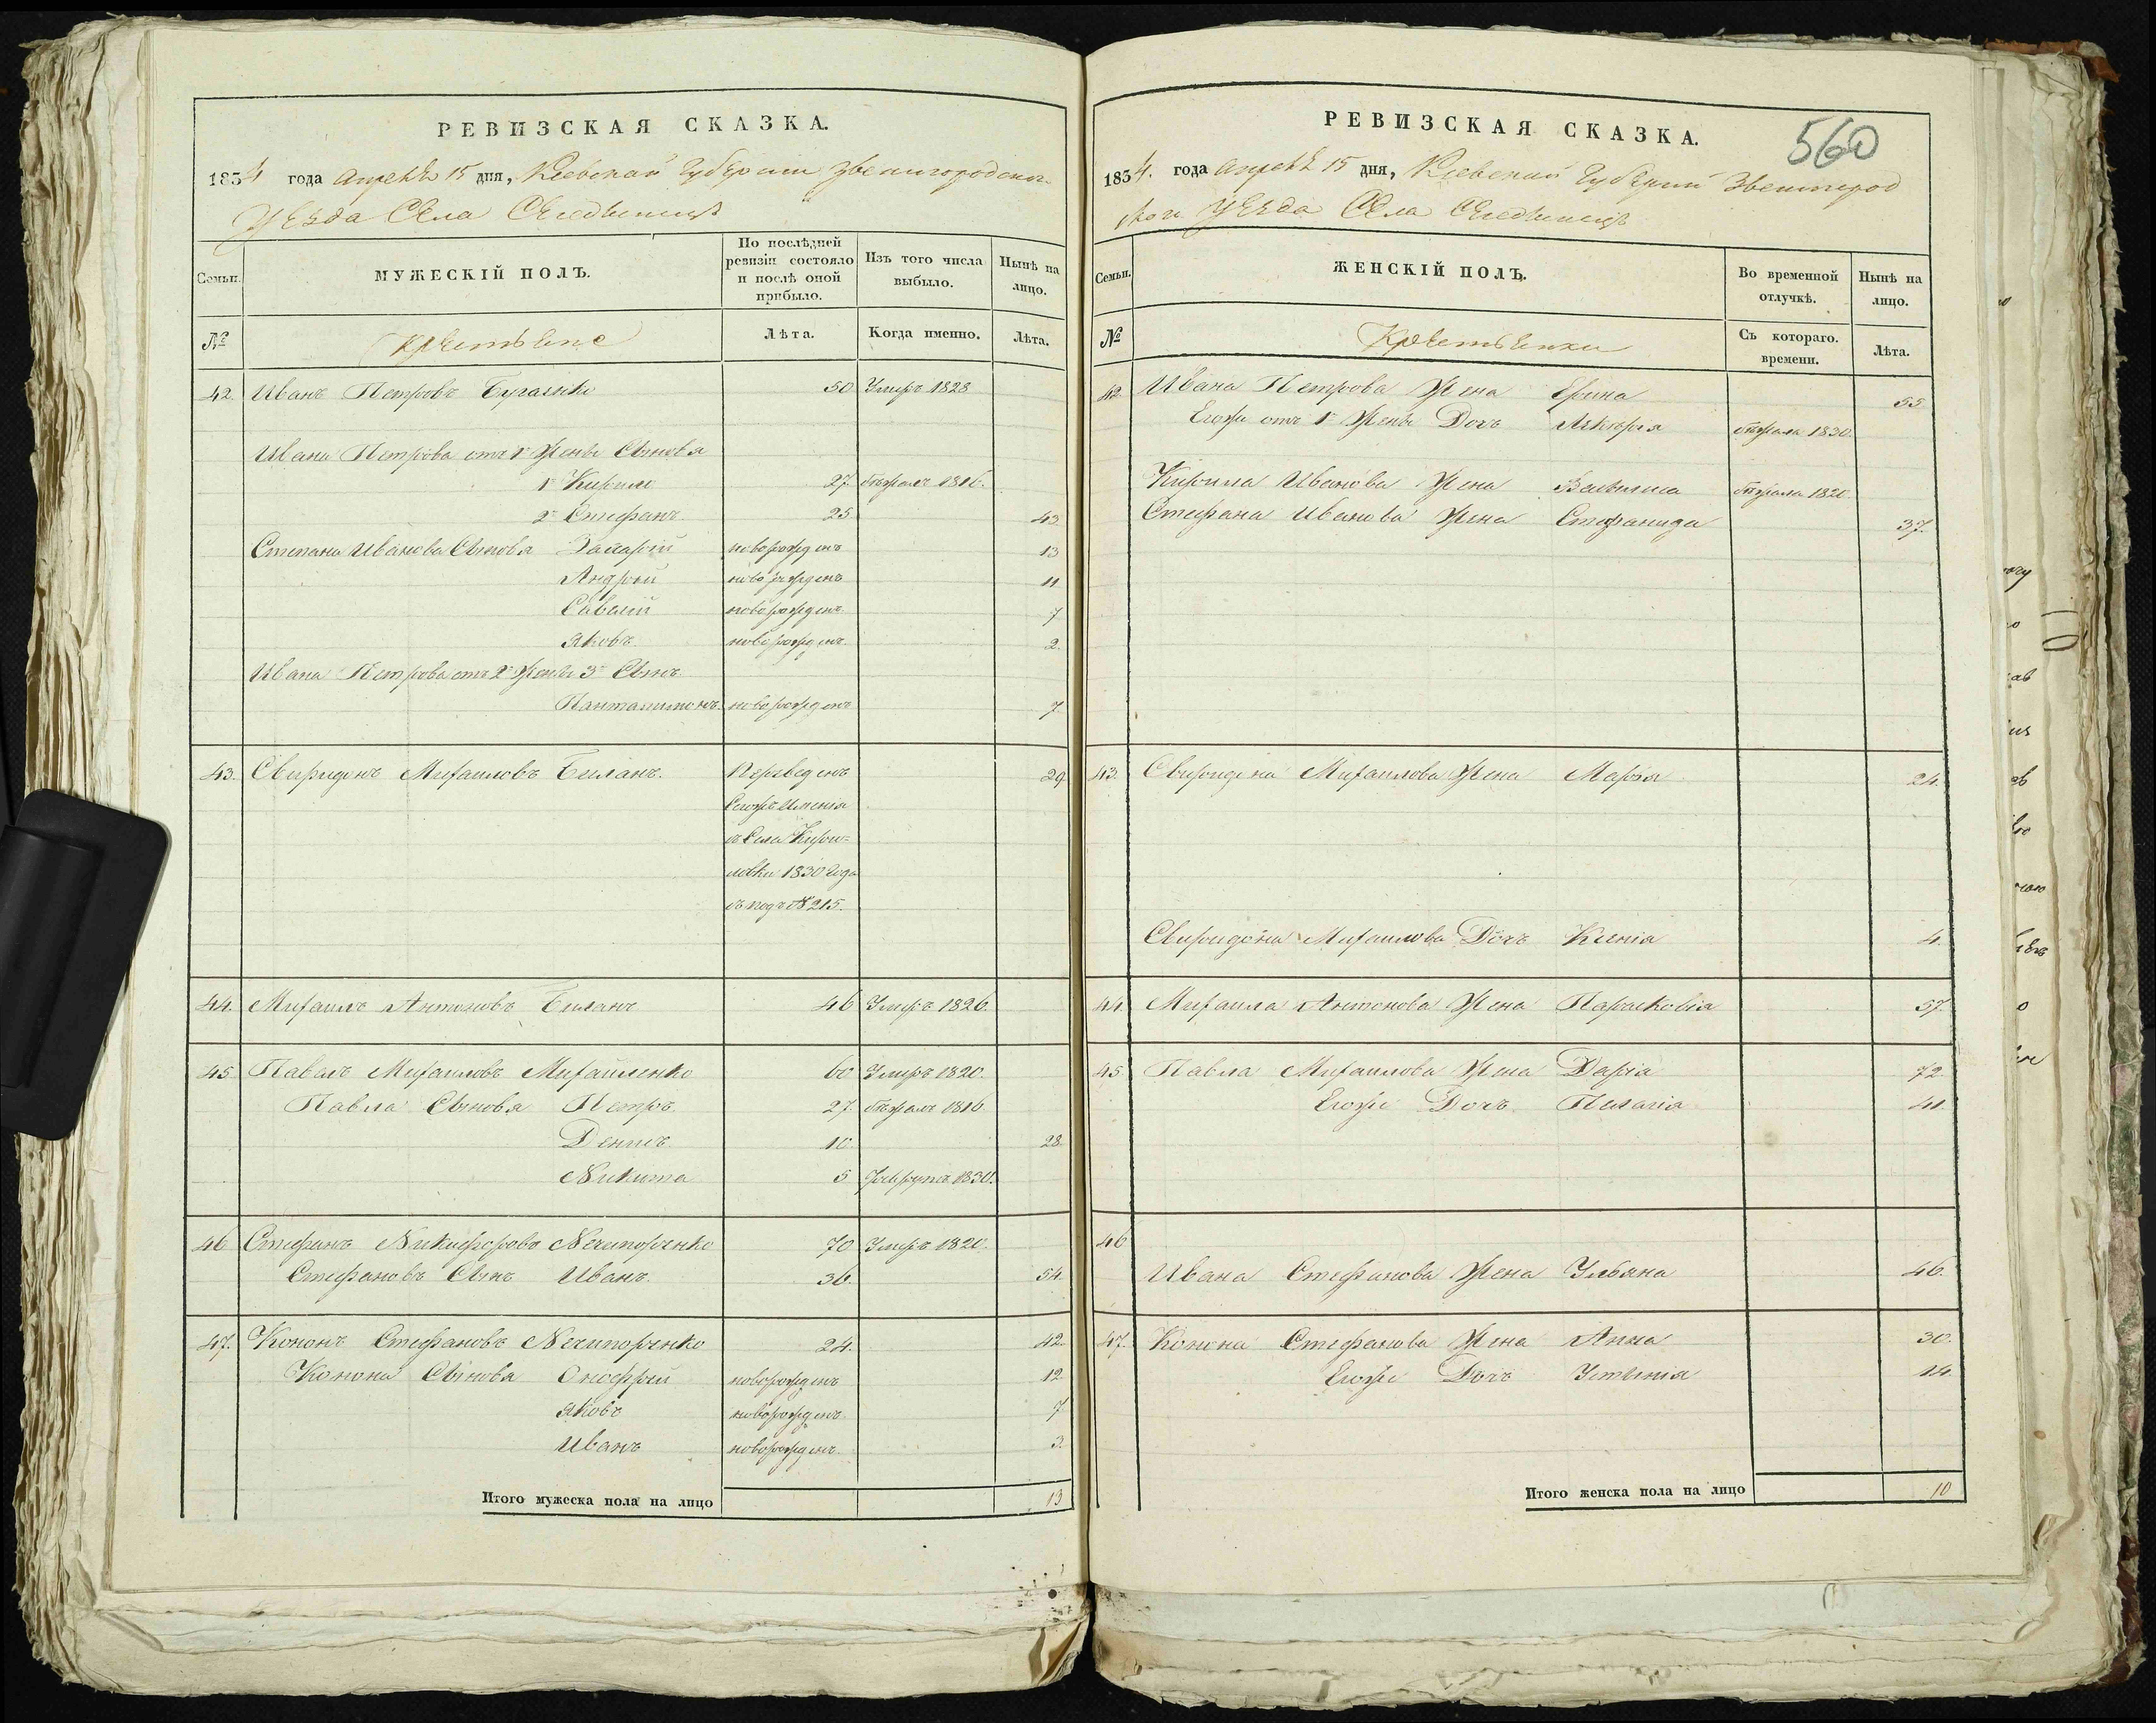 РЕВИЗСКАЯ СКАЗКА.
1834 года Апрелѣ 15 дня, Киевской Губернии Звенигородског
Уезда Села
Семьи.
МУЖЕСКІЙ ПОЛЪ.
По послѣдней ревизіи состояло и послѣ оной прибыло.
Изъ того числа выбыло.
Нынѣ на лицо.
№
Крестьяне
Лѣта.
Когда именно.
Лѣта.
42. Иванъ Петровъ 50 Умеръ 1828
Ивана Петрова отъ 1й Жены Сыновья
1й Кирило 27. бежалъ 1816.
2й Стефанъ 25 43
Степана Иванова Сыновья Захарій новорожденъ 13
Андрей новорожденъ 11
Савелій новорожденъ 7
Яковъ новорожденъ 2.
Ивана Петрова отъ 2й Жены 3й Сынъ
Пантелимонъ новорожденъ 7
43. Свиридонъ Михаиловъ Биланъ. Переведенъ 29
Сегожъ Имения
съ Села Кири-
ловки 1830 Года
съ подъ № 215.
44. Михаилъ Антоновъ Биланъ 46 Умеръ 1826.
45 Павелъ Михаиловъ Михайленко 60 Умеръ 1820.
Павла Сыновья Петръ 27. бежалъ 1816
Денисъ 10 28.
Никита 5 Рекрутъ 1830.
46 Стефанъ Никифоровъ Нечипоренко 70 Умеръ 1820.
Стефановъ Сынъ Иванъ. 36. 54.
47. Кононъ Стефановъ Нечипоренко 24. 42.
Конона Сыновья Онофрей новорожденъ 12
Яковъ новорожденъ. 7
Иванъ новорожденъ. 3.
Итого мужеска пола на лицо 13
560
РЕВИЗСКАЯ СКАЗКА.
1834. года Апрелѣ 15 дня, Киевской Губернии Звенигород
ского Уезда Села
Семьи.
ЖЕНСКІЙ ПОЛЪ.
Во временной отлучкѣ.
Нынѣ на лицо.
№
Крестьянки
Съ котораго. времени.
Лѣта.
42 Ивана Петрова Жена Ерина 55
Егожъ отъ 1й Жены Дочь бежала 1830.
Кирила Иванова Жена Василиса бежала 1820.
Стефана Иванова Жена Стефанида 37.
43. Свиридона Михаилова Жена Марія 24.
Свиридона Михаилова Дочь Ксенія 4.
44. Михаила Антонова Жена Парасковія 57.
45 Павла Михаилова Жена Дарія 72.
Егоже Дочь Пелагія 41.
46
Ивана Стефанова Жена Ульяна 46.
47. Конона Стефанова Жена Анна 30.
Егоже Дочь Устинія 14.
Итого женска пола на лицо 10